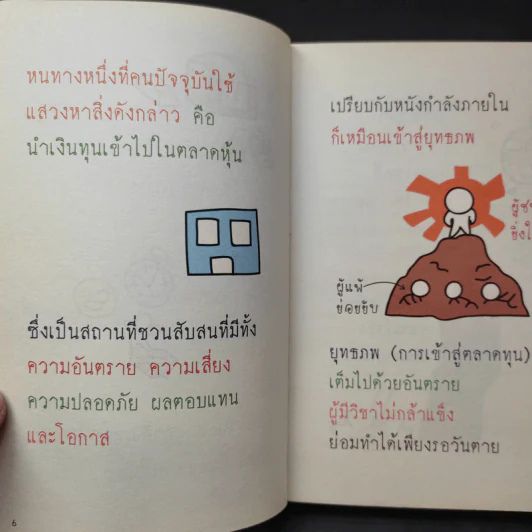 หนทางหนึ่งที่คนปัจจุบันใช้
แสวงหาสิ่งดังกล่าว คือ
นำเงินทุนเข้าไปในตลาดหุ้น
ซึ่งเป็นสถานที่ชวนสับสนที่มีทั้ง
ความอันตราย ความเสี่ยง
ความปลอดภัย ผลตอบแทน
และโอกาส
6
เปรียบกับหนังกำลังภายใน
ก็เหมือนเข้าสู่ยุทธภพ
ผู้แพ้
ย่อยยับ
ยุทธภพ (การเข้าสู่ตลาดทุน)
เต็มไปด้วยอันตราย
ผู้มีวิชาไม่กล้าแข็ง
ย่อมทำได้เพียงรอวันตาย